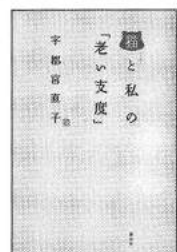 猫と私の
『老い支度』
宇都宮直子